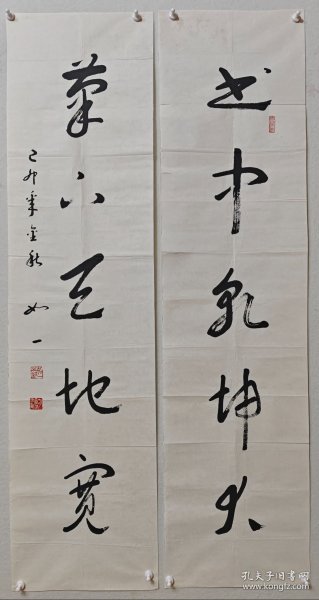 书中乾坤大
筆下天地宽
己卯年金秋 如一
孔夫子旧书网
www.kongfz.com